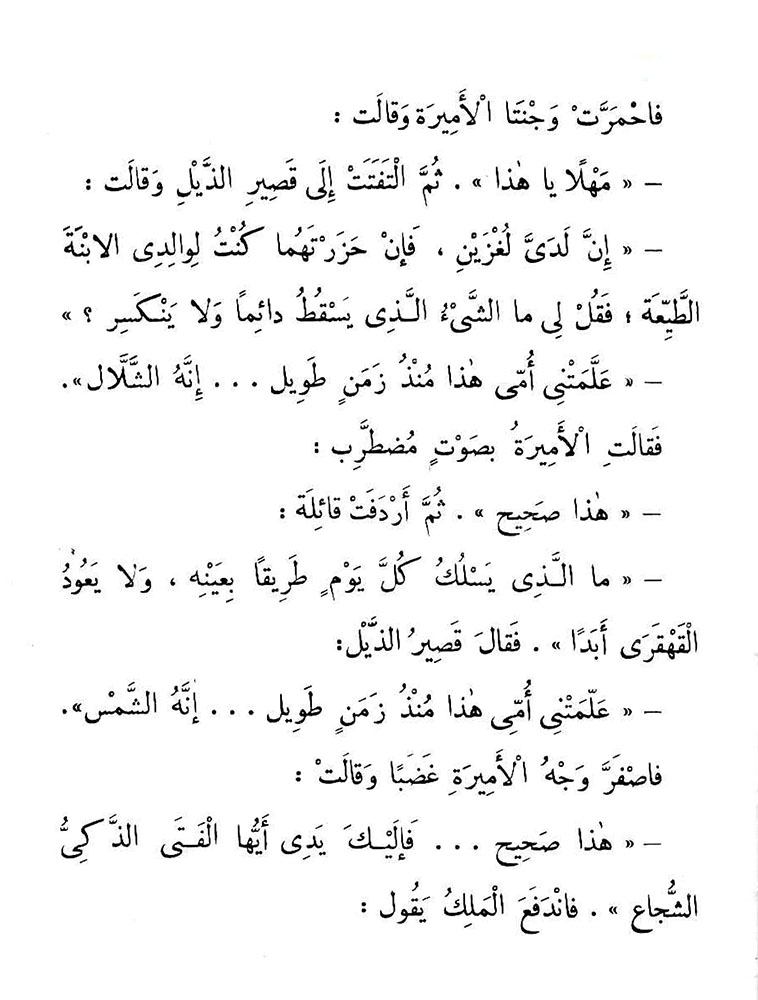 فاحْمَرَّتْ وَجْنَتَا الْأَمِيرَة وَقالَت :
— « مَهْلًا يا هٰذا » . ثُمَّ الْتَفَتَتْ إِلَى قَصِيرِ الذَّيْلِ وَقالَت :
— « إِنَّ لَدَىَّ لُغْزَيْنِ ، فَإِنْ حَزَرْتَهُما كُنْتُ لِوالِدِى الابْنَةَ
الطَّيِّعَة ؛ فَقُلْ لِى ما الشَّىْءُ الَّذِى يَسْقُطُ دائِماً وَلا يَنْكَسِر ؟ »
— « عَلَّمَتْنِى أُمِّى هٰذا مُنْذُ زَمَنٍ طَوِيل ... إِنَّهُ الشَّلَّال».
فَقالَتِ الْأَمِيرَةُ بصَوْتٍ مُضطَّرِب :
— « هٰذا صَحِيح » . ثُمَّ أَرْدَفَتْ قائِلَة :
— « ما الَّذِى يَسْلُكُ كُلَّ يَوْمٍ طَرِيقاً بِعَيْنِه ، وَلا يَعُودُ
الْقَهْقَرَى أَبَدًا » . فَقالَ قَصِيرُ الذَّيْل:
— « عَلَّمَتْنِى أُمِّى هٰذا مُنْذُ زَمَنٍ طَوِيل ... إنَّهُ الشَّمْس».
فاصْفَرَّ وَجْهُ الْأَمِيرَةِ غَضَبًا وَقالَتْ :
— « هٰذا صَحِيح ... فَإلَيْكَ يَدِى أَيُّها الْفَتَى الذَّكِىُّ
الشُّجاع » . فانْدَفَعَ الْمَلِكُ يَقُول :